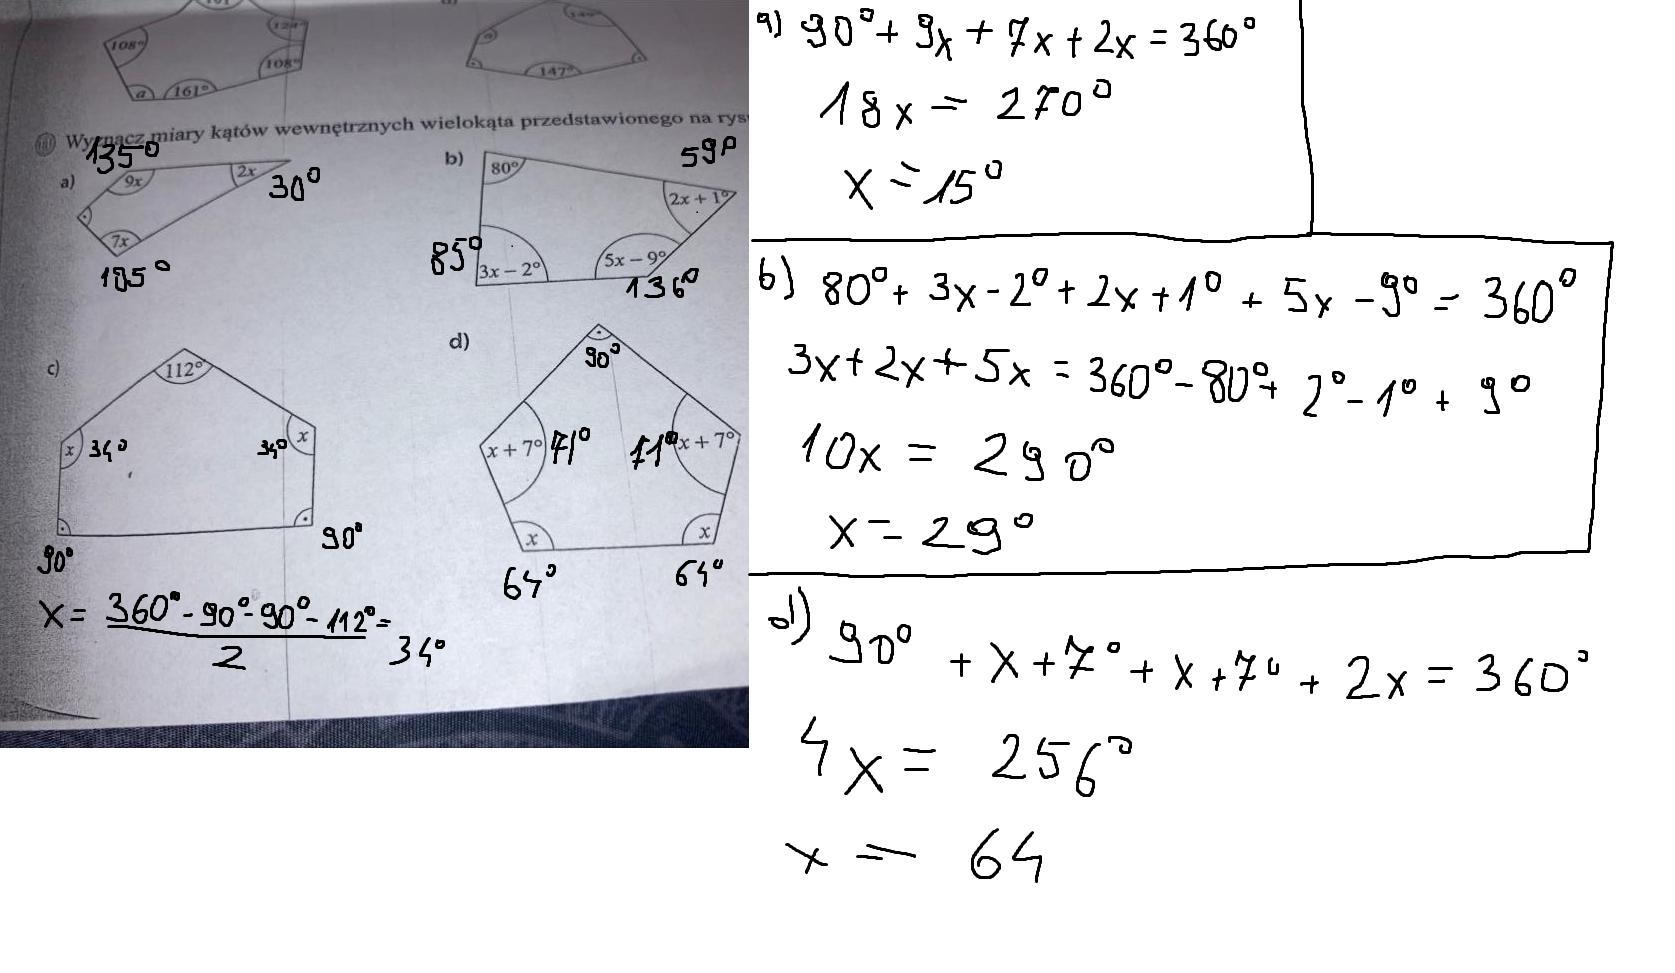 124°
108°
108°
a
161°
147°
Wyznacz miary kątów wewnętrznych wielokąta przedstawionego na rys
135°
a)
9x
2x
30°
7x
105°
b)
80°
59°
2x + 1°
85°
3x – 2°
5x – 9°
136°
c)
112°
x
34°
34°
x
90°
90°
x = 360° - 90° - 90° - 112° = 34°
2
d)
90°
x + 7°
71°
71°
x + 7°
x
x
64°
64°
a) 90° + 9x + 7x + 2x = 360°
18x = 270°
x = 15°
b) 80° + 3x - 2° + 2x + 1° + 5x - 9° = 360°
3x + 2x + 5x = 360° - 80° + 2° - 1° + 9°
10x = 290°
x = 29°
d) 90° + x + 7° + x + 7° + 2x = 360°
4x = 256°
x = 64